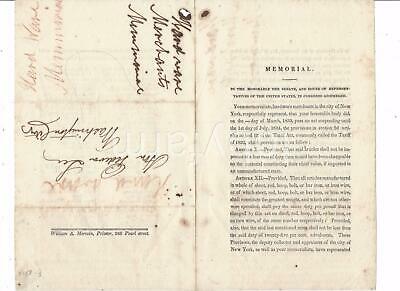 Hard ware
Merchants
Hard Ware
Washington City
William A. Mercein, Printer, 240 Pearl street.
MEMORIAL.
TO THE HONORABLE THE SENATE, AND HOUSE OF REPRESEN-
TATIVES OF THE UNITED STATES, IN CONGRESS ASSEMBLED.
Your memorialists, hardware merchants in the city of
New York, respectfully represent, that your honorable body did
on the day of March, 1833, pass an act suspending until
the 1st day of July, 1834, the provisions in section 2d
of the Tariff Act, commonly called the Tariff
of 1832, which provisions are as follow:
Article X.—Provided, That said articles shall not be im-
ported at a less rate of duty than would have been chargeable
on the material constituting their chief value, if imported in
an unmanufactured state.
Article XII.—Provided, That all articles manufactured in
whole of sheet, rod, hoop, bolt, or bar iron, or of iron wire,
or of which sheet, rod, hoop, bolt, or bar iron, or iron wire,
shall constitute the greatest weight, and which are not other-
wise specified, shall pay the same duty per pound that is
charged by this act on sheet, rod, hoop, bolt, or bar iron,
or on iron wire, of the same number respectively: Provided,
also, that the said last mentioned rates shall not be less than
the said duty of twenty-five per cent. advalorem. These
Provisoes, the deputy collector and appraisers of the city of
New York, as well as your memorialists, have represented